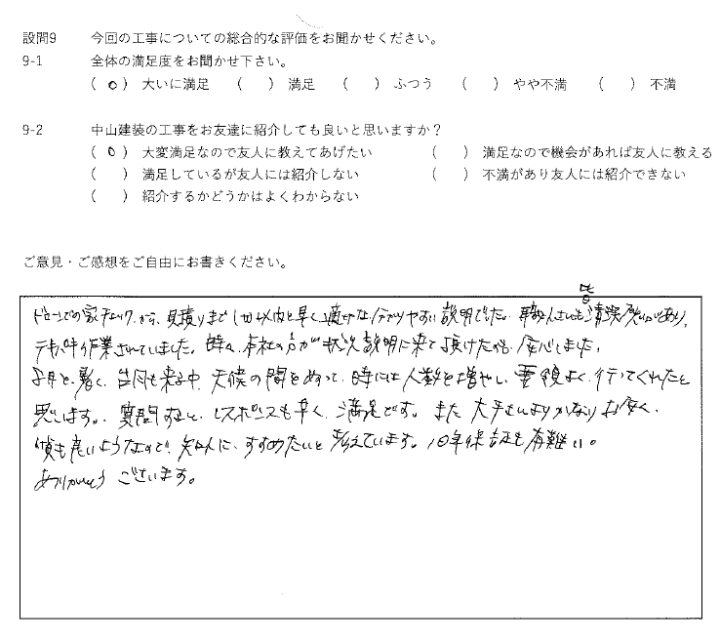 設問9 今回の工事についての総合的な評価をお聞かせください。
9-1 全体の満足度をお聞かせ下さい。
( o ) 大いに満足 ( ) 満足 ( ) ふつう ( ) やや不満 ( ) 不満
9-2 中山建装の工事をお友達に紹介しても良いと思いますか？
( o ) 大変満足なので友人に教えてあげたい ( ) 満足なので機会があれば友人に教える
( ) 満足しているが友人には紹介しない ( ) 不満があり友人には紹介できない
( ) 紹介するかどうかはよくわからない
ご意見・ご感想をご自由にお書きください。
皆
ドローンでの家チェックから、見積りまで1カ月以内と早く、適切な、分かりやすい説明でした。職人さんも清潔感があり、
テキパキ作業されていました。時々、本社の方が状況説明に来て頂けたのも、安心しました。
5月と、暑く、台風も来る中、天候の間をぬって、時には人数を増やし、要領よく、行ってくれたと
思います。質問すると、レスポンスも早く、満足です。また大手さんよりかなりお安く、
質も良いようなので、知人に、すすめたいと考えています。10年保証も有難い。
ありがとうございます。